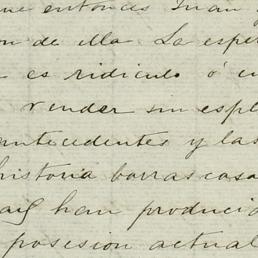 que entonces Juan y
on de ella La espe
es ridículo ó in
render sin espl
antecedentes y las
historia borrascosa
han produci
posesion actual